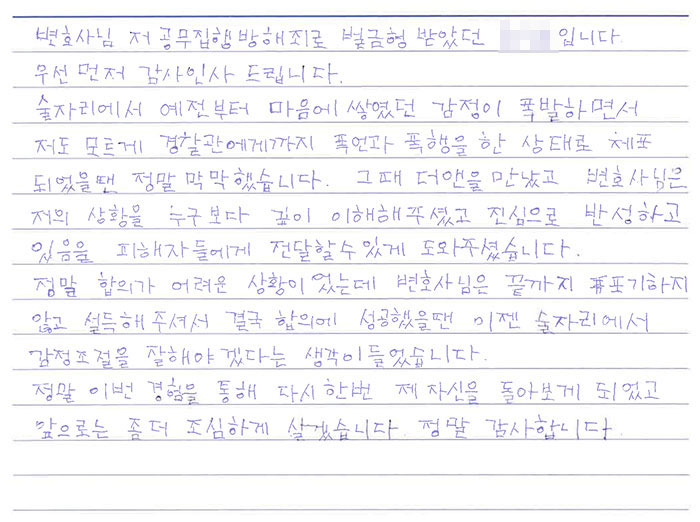 변호사님 저 공무집행방해죄로 벌금형 받았던 입니다.
우선 먼저 감사인사 드립니다.
술자리에서 예전부터 마음에 쌓였던 감정이 폭발하면서
저도 모르게 경찰관에게까지 폭언과 폭행을 한 상태로 체포
되었을땐 정말 막막했습니다. 그때 더앤을 만났고 변호사님은
저의 상황을 누구보다 깊이 이해해주셨고 진심으로 반성하고
있음을 피해자들에게 전달할수있게 도와주셨습니다.
정말 합의가 어려운 상황이었는데 변호사님은 끝까지 포기하지
않고 설득해주셔서 결국 합의에 성공했을땐 이젠 술자리에서
감정조절을 잘해야겠다는 생각이들었습니다.
정말 이번 경험을 통해 다시한번 제 자신을 돌아보게 되었고
앞으로는 좀더 조심하게 살겠습니다. 정말 감사합니다.